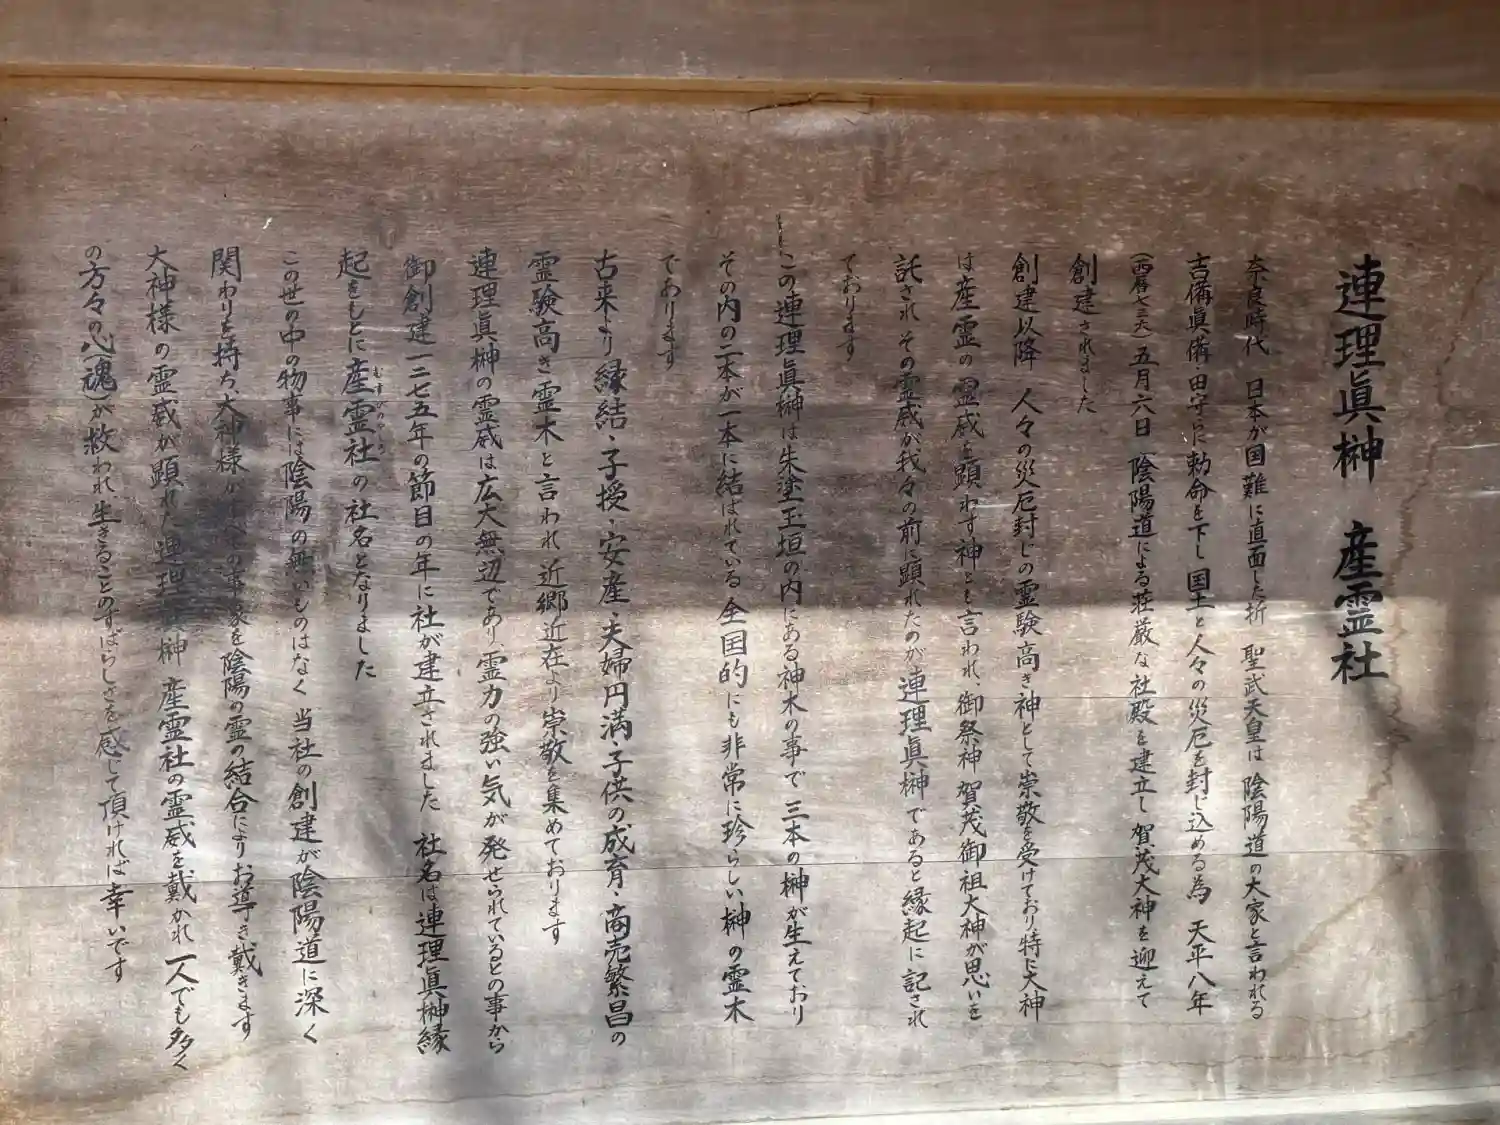 連理眞榊　産霊社
奈良時代　日本が国難に直面した折　聖武天皇は　陰陽道の大家と言われる
吉備眞備・田守らに勅命を下し国土と人々の災厄を封じ込める為　天平八年
（西暦七三六）五月六日　陰陽道による荘厳な社殿を建立し賀茂大神を迎えて
創建されました
創建以降　人々の災厄封じの霊験高き神として崇敬を受けており特に大神
は産霊の霊威を顕わす神とも言われ、御祭神賀茂御祖大神が思いを
託されその霊威が我々の前に顕れたのが連理眞榊であると縁起に記され
ております
この連理眞榊は朱塗玉垣の内にある神木の事で三本の榊が生えており
その内の二本が一本に結ばれている全国的にも非常に珍らしい榊の霊木
であります
古来より縁結・子授・安産・夫婦円満・子供の成育・商売繁昌の
霊験高き霊木と言われ近郷近在より崇敬を集めております
連理眞榊の霊威は広大無辺であり、霊力の強い気が発せられているとの事から
御創建一二七五年の節目の年に社が建立されました　社名は連理眞榊縁
起をもとに産霊社の社名となりました
この世の中の物事には陰陽の無いものはなく当社の創建が陰陽道に深く
関わりを持ち、大神様が の事象を陰陽の霊の結合によりお導き戴きます
大神様の霊威が顕れた連理眞榊　産霊社の霊威を戴かれ一人でも多く
の方々の心（魂）が救われ生きることのすばらしさを感じて頂ければ幸いです